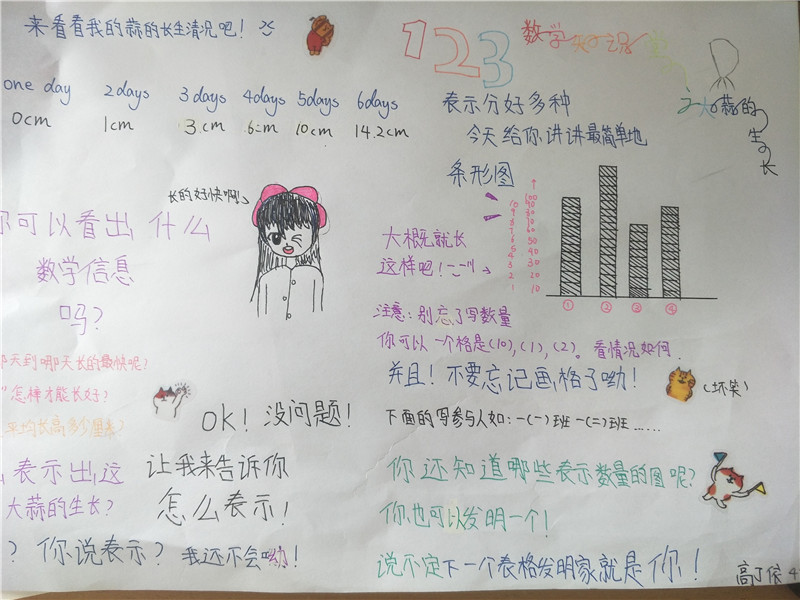 来看看我的蒜的长生情况吧！
one day 2 days 3 days 4 days 5 days 6 days
0cm 1cm 3cm 6cm 10cm 14.2cm
长的好快啊！
你可以看出 什么
数学信息
吗？
那天到哪天长的最快呢？
怎样才能长好？
平均长高多少厘米？
表示出这
大蒜的生长？
OK！没问题！
让我来告诉你
怎么表示！
？你说表示？我还不会呦！
123 数学知识
大蒜的
生长
表示分好多种
今天给你讲讲最简单地
条形图
大概就长
这样吧！
10 100
9 90
8 80
7 70
6 60
5 50
4 40
3 30
2 20
1 10
① ② ③ ④
注意：别忘了写数量
你可以一个格是(10),(1),(2)。看情况如何.
并且！不要忘记画格子呦！
（坏笑）
下面的写参与人如：一(一)班 一(二)班……
你还知道哪些表示数量的图呢？
你也可以发明一个！
说不定下一个表格发明家就是你！